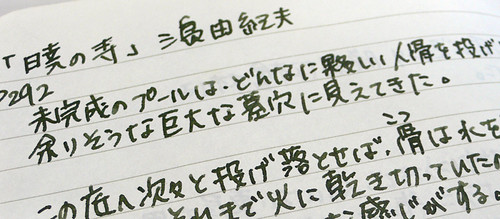 「暁の寺」 三島由紀夫
P292
未完成のプールは、どんなに夥しい人骨を投げ
余りそうな巨大な墓穴に見えてきた。
この底へ次々と投げ落とせば、骨は水を
こつ
それまで火に乾き切っていた
感じがする